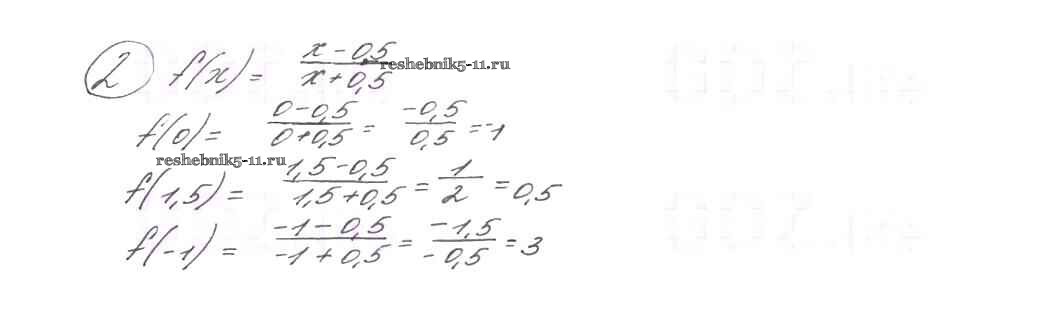 2 f(x) = (x - 0,5)/(x + 0,5)
reshebnik5-11.ru
f(0) = (0 - 0,5)/(0 + 0,5) = (-0,5)/(0,5) = -1
reshebnik5-11.ru
f(1,5) = (1,5 - 0,5)/(1,5 + 0,5) = 1/2 = 0,5
f(-1) = (-1 - 0,5)/(-1 + 0,5) = (-1,5)/(-0,5) = 3